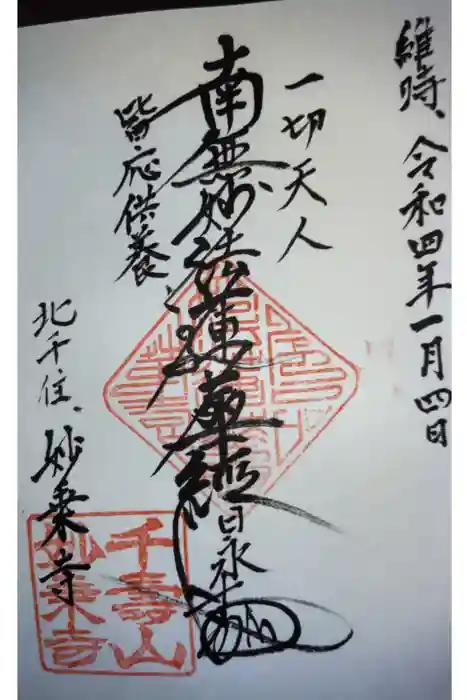 維時、令和四年一月四日
一切天人
南無妙法蓮華経
皆応供養
日永
北千住、妙乗寺
千壽山
妙乗寺